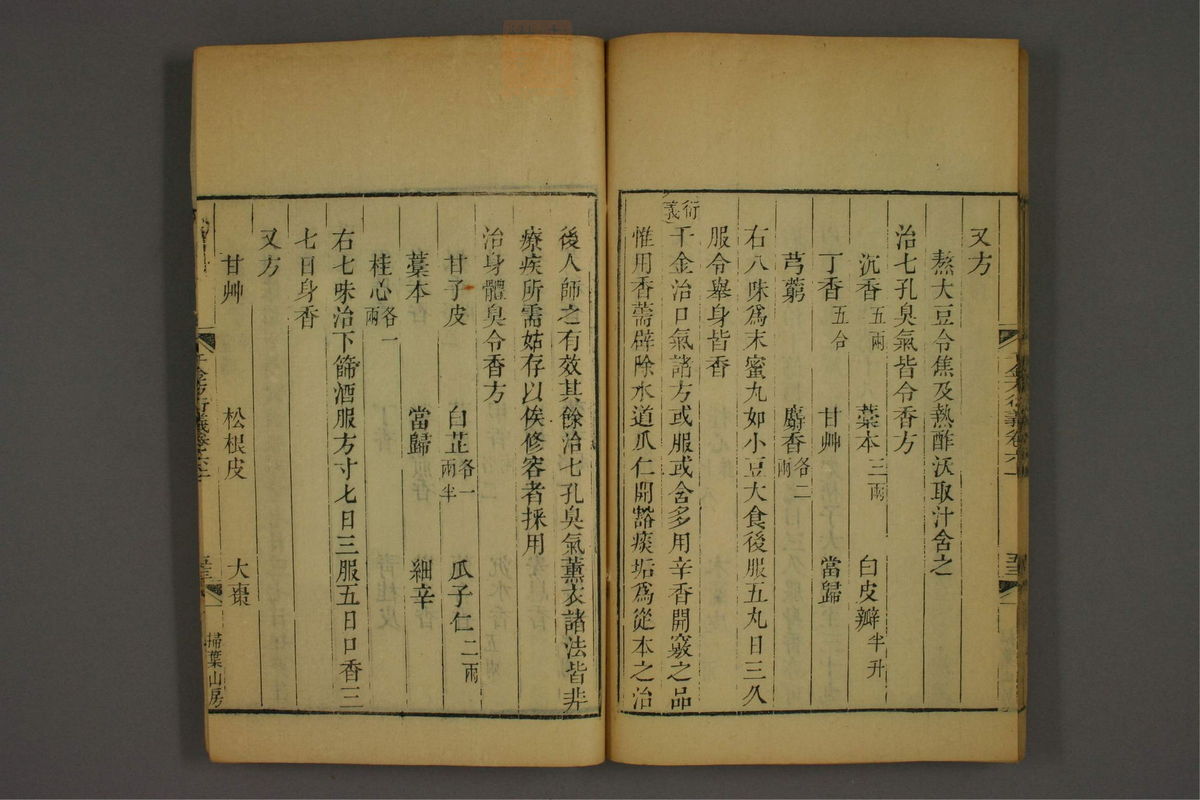 又方
熬大豆令焦及熱酢沃取汁含之
治七孔臭氣皆令香方
沉香五兩 藁本三兩 白皮瓣半升
丁香五合 甘艸 當歸
芎藭 麝香各二兩
右八味爲末蜜丸如小豆大食後服五丸日三久
服令舉身皆香
衍義
千金治口氣諸方或服或含多用辛香開竅之品
惟用香薷辟除水道瓜仁開豁痰垢爲從本之治
後人師之有效其餘治七孔臭氣薰衣諸法皆非
療疾所需姑存以俟修容者採用
治身體臭令香方
甘子皮 白芷各一兩半 瓜子仁二兩
藁本 當歸 細辛
桂心各一兩
右七味治下篩酒服方寸七日三服五日口香三
七日身香
又方
甘艸 松根皮 大棗
掃葉山房